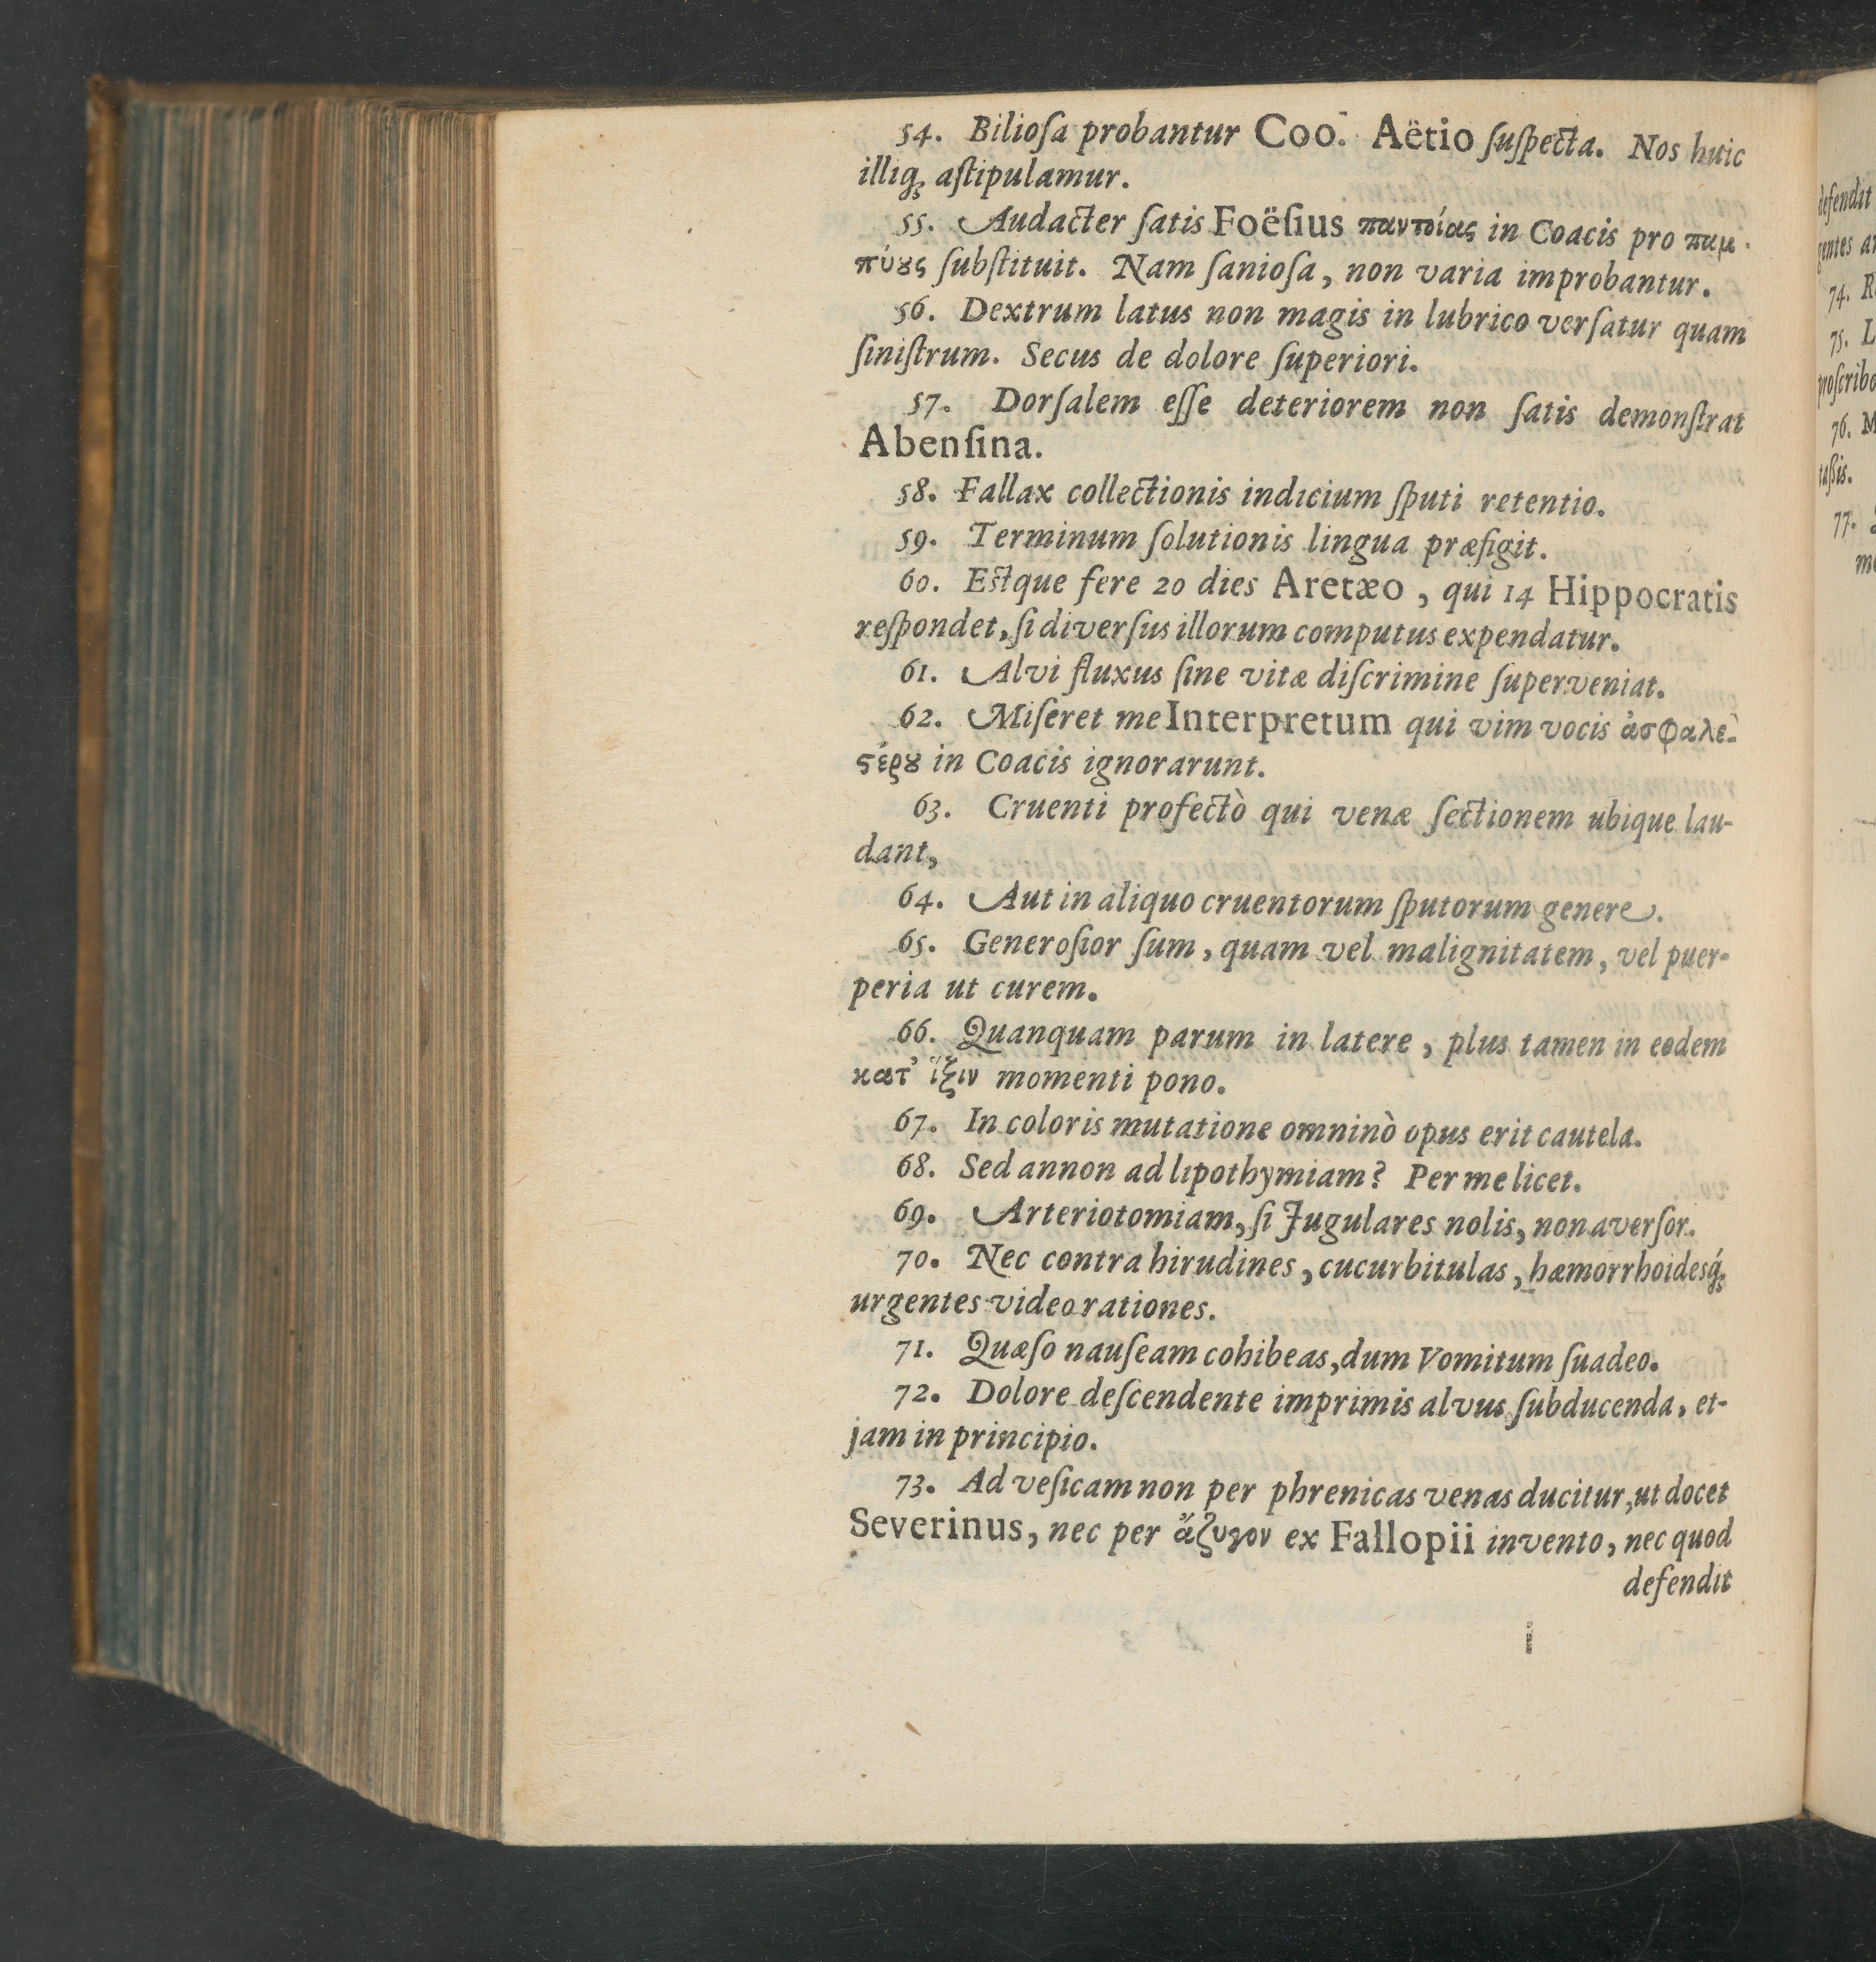 54. Bilioſa probantur Coo. Aëtio ſuſpecta. Nos huic
illiq́ꝫ aſtipulamur.
55. Audacter ſatis Foëſius παντοίας in Coacis pro παμ-
πύȣς ſubſtituit. Nam ſanioſa, non varia improbantur.
56. Dextrum latus non magis in lubrico verſatur quam
ſiniſtrum. Secus de dolore ſuperiori.
57. Dorſalem eſſe deteriorem non ſatis demonſtrat
Abenſina.
58. Fallax collectionis indicium ſputi retentio.
59. Terminum ſolutionis lingua præfigit.
60. Eſtque fere 20 dies Aretæo, qui 14 Hippocratis
reſpondet, ſi diverſus illorum computus expendatur.
61. Alvi fluxus ſine vitæ diſcrimine ſuperveniat.
62. Miſeret me Interpretum qui vim vocis ἀσφαλε-
ϛέρȣ in Coacis ignorarunt.
63. Cruenti profectò qui venæ ſectionem ubique lau-
dant,
64. Aut in aliquo cruentorum ſputorum genere.
65. Generoſior ſum, quam vel malignitatem, vel puer-
peria ut curem.
66. Quanquam parum in latere, plus tamen in eodem
κατ᾽ ἴξιν momenti pono.
67. In coloris mutatione omninò opus erit cautela.
68. Sed annon ad lipothymiam? Per me licet.
69. Arteriotomiam, ſi Jugulares nolis, non averſor.
70. Nec contra hirudines, cucurbitulas, hæmorrhoidesq́ꝫ
urgentes video rationes.
71. Quæſo nauſeam cohibeas, dum Vomitum ſuadeo.
72. Dolore deſcendente imprimis alvus ſubducenda, et-
jam in principio.
73. Ad veſicam non per phrenicas venas ducitur, ut docet
Severinus, nec per ἄζυγον ex Fallopii invento, nec quod
defendit
defendit
gentes
74.
75.
76.
taßis.
77.